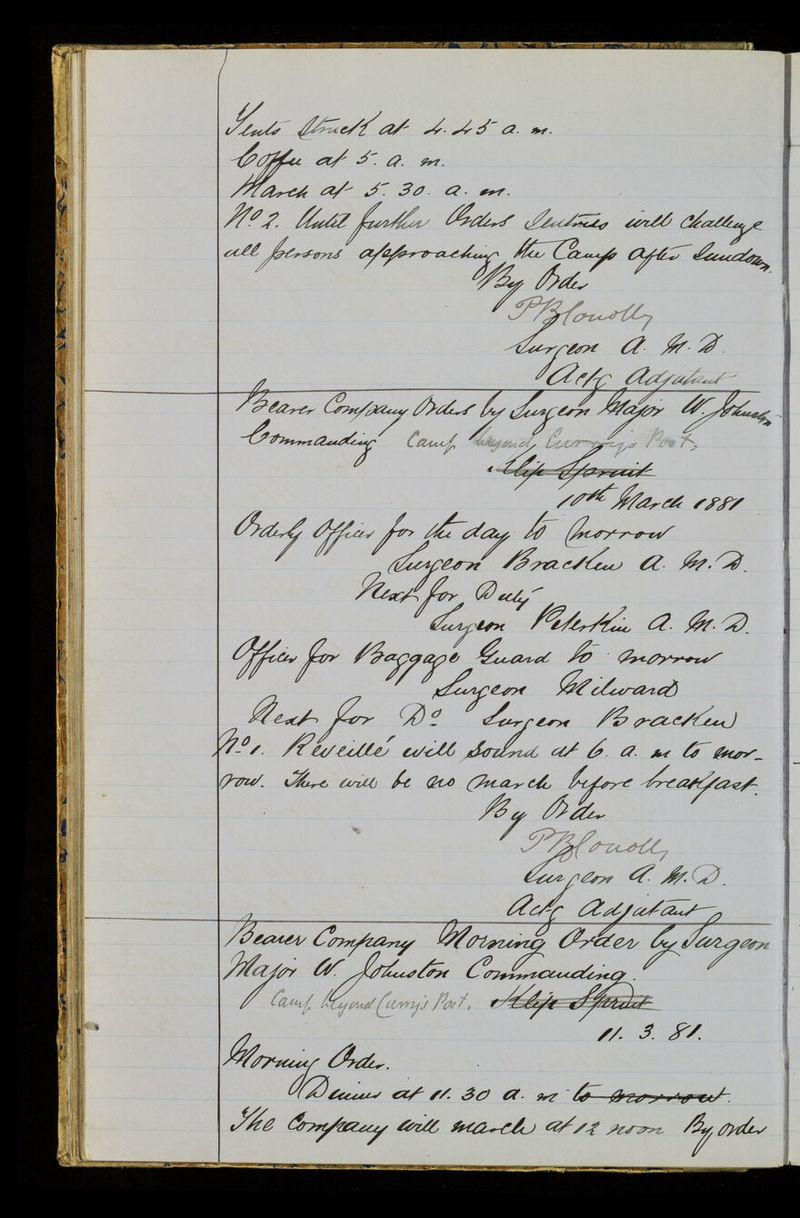 Tents struck at 4.45 a. m.
Coffee at 5. a. m.
March at 5. 30. a. m.
No 2. Until further Orders Sentries will challenge
all persons approaching the Camp after Sundown.
By Order
P B Conolly
Surgeon A. M. D.
Actg Adjutant
Bearer Company Orders by Surgeon Major W. Johnston
Commanding Camp beyond Curry's Post,
Klip Spruit
10th March 1881
Orderly Officer for the day to morrow
Surgeon Bracken A. M. D.
Next for Duty
Surgeon Peterkin A. M. D.
Officer for Baggage Guard to morrow
Surgeon Milward
Next for Do Surgeon Bracken
No 1. Reveillé will sound at 6. a. m to mor-
row. There will be no march before breakfast.
By Order
P B Conolly
Surgeon A. M. D.
Actg Adjutant
Bearer Company Morning Order by Surgeon
Major W. Johnston Commanding.
Camp beyond Curry's Post. Klip Spruit
11. 3. 81.
Morning Order.
Dinner at 11. 30 a. m to morrow.
The Company will march at 12 noon By order